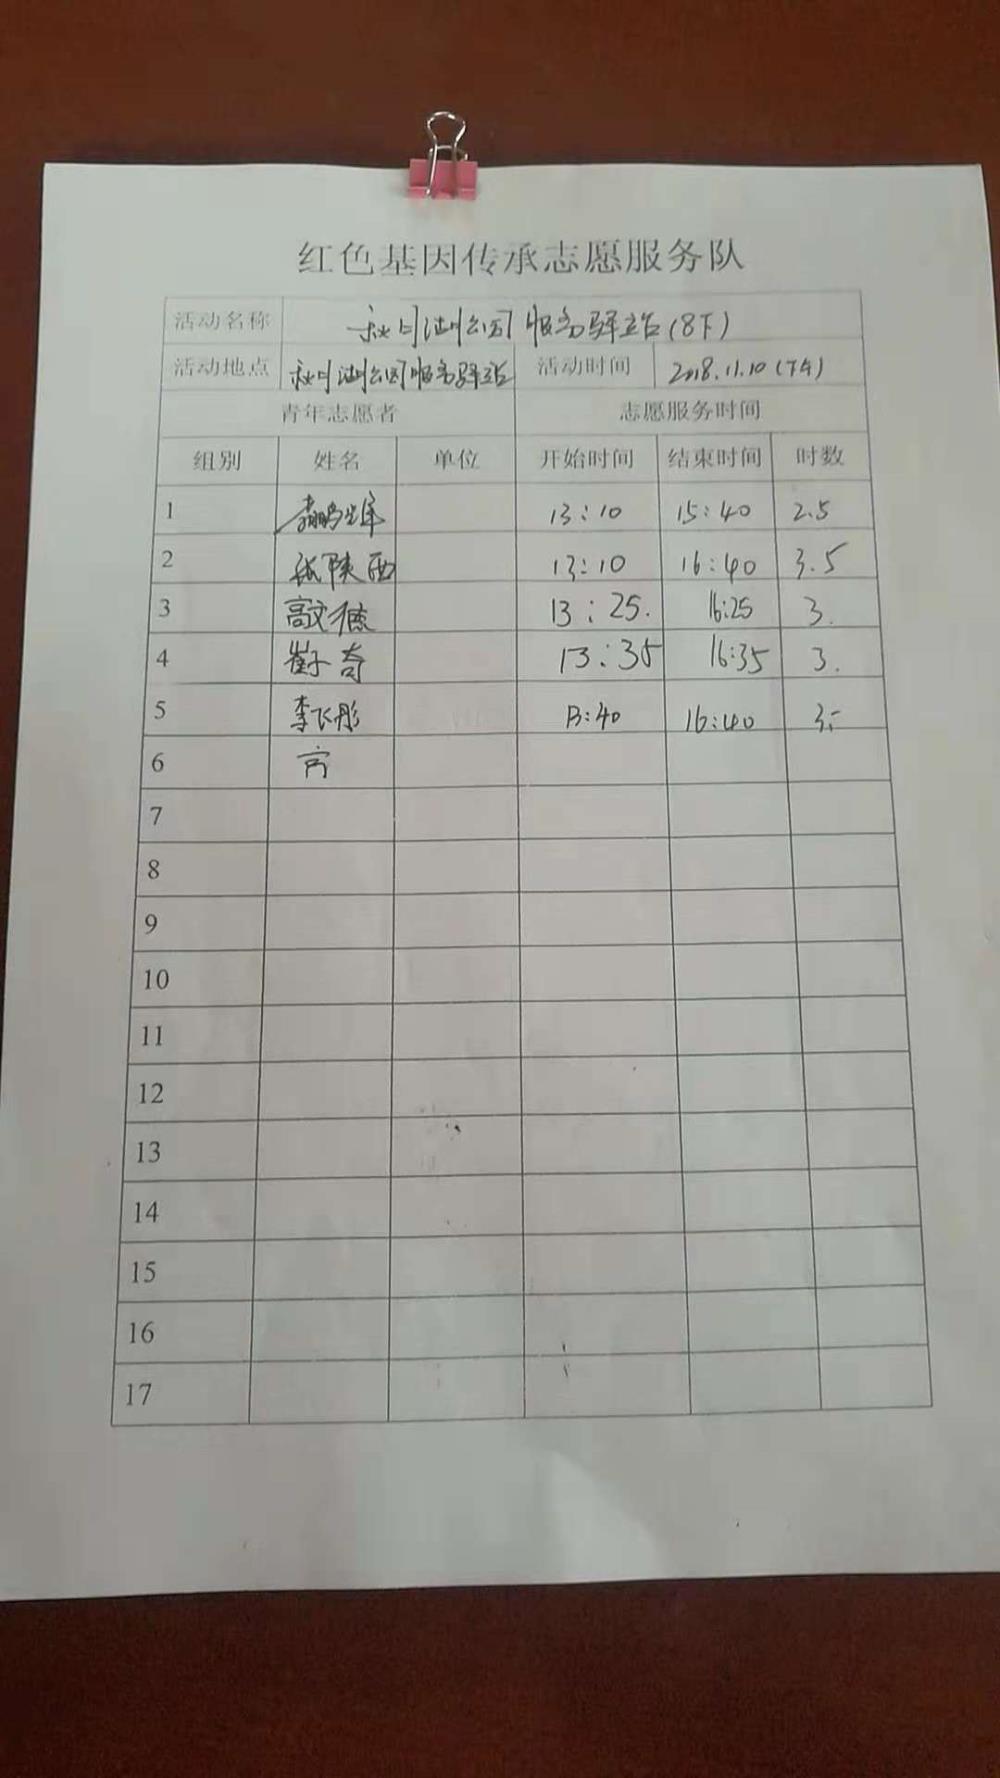 红色基因传承志愿服务队
活动名称 秋月湖公园服务驿站(8下)
活动地点 秋月湖公园服务驿站 活动时间 2018.11.10(下午)
青年志愿者 志愿服务时间
组别 姓名 单位 开始时间 结束时间 时数
1 13:10 15:40 2.5
2 张陕西 13:10 16:40 3.5
3 高文德 13:25. 16:25 3.
4 崔子奇 13:35 16:35 3.
5 李飞彤 13:40 16:40 3.
6
7
8
9
10
11
12
13
14
15
16
17